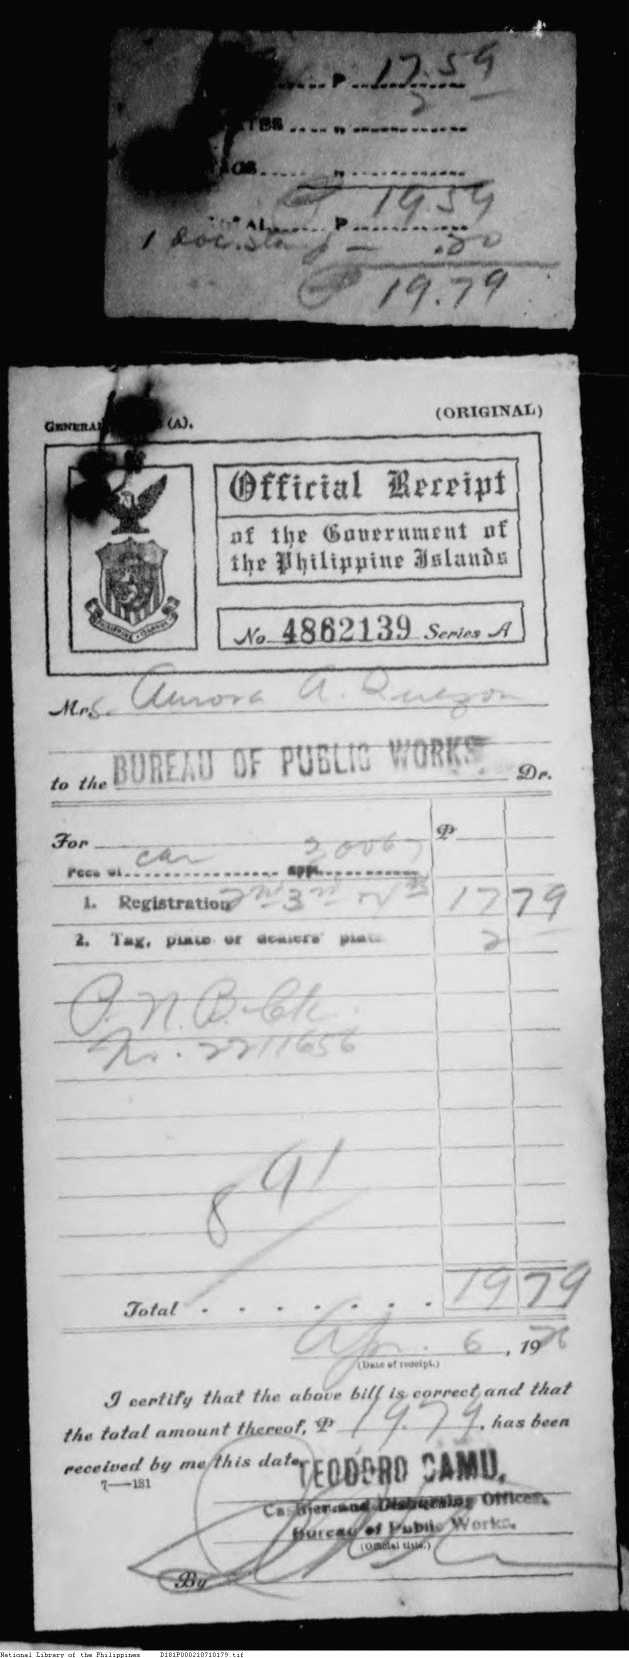 P 17.59
2 —
"
"
P 19.59
1 doc. stamp — .20
P 19.79
(ORIGINAL)
GENERAL (A).
Official Receipt
of the Government of
the Philippine Islands
No. 4862139 Series A
Mrs. Aurora A. Quezon
to the BUREAU OF PUBLIC WORKS Dr.
For P
car
Fees of appl.
1. Registration 2nd 3rd 4th 17 79
2. Tag, plate or dealers' plate 2 —
P. N. B. Ck.
No. 2211656
8 91
Total 19 79
Apr. 6, 19
(Date of receipt.)
I certify that the above bill is correct and that
the total amount thereof, P 19.79, has been
received by me this date.
7—181
TEODORO CAMU,
Cashier and Disbursing Officer,
Bureau of Public Works.
(Official title.)
By
National Library of the Philippines D181P000210710179.tif